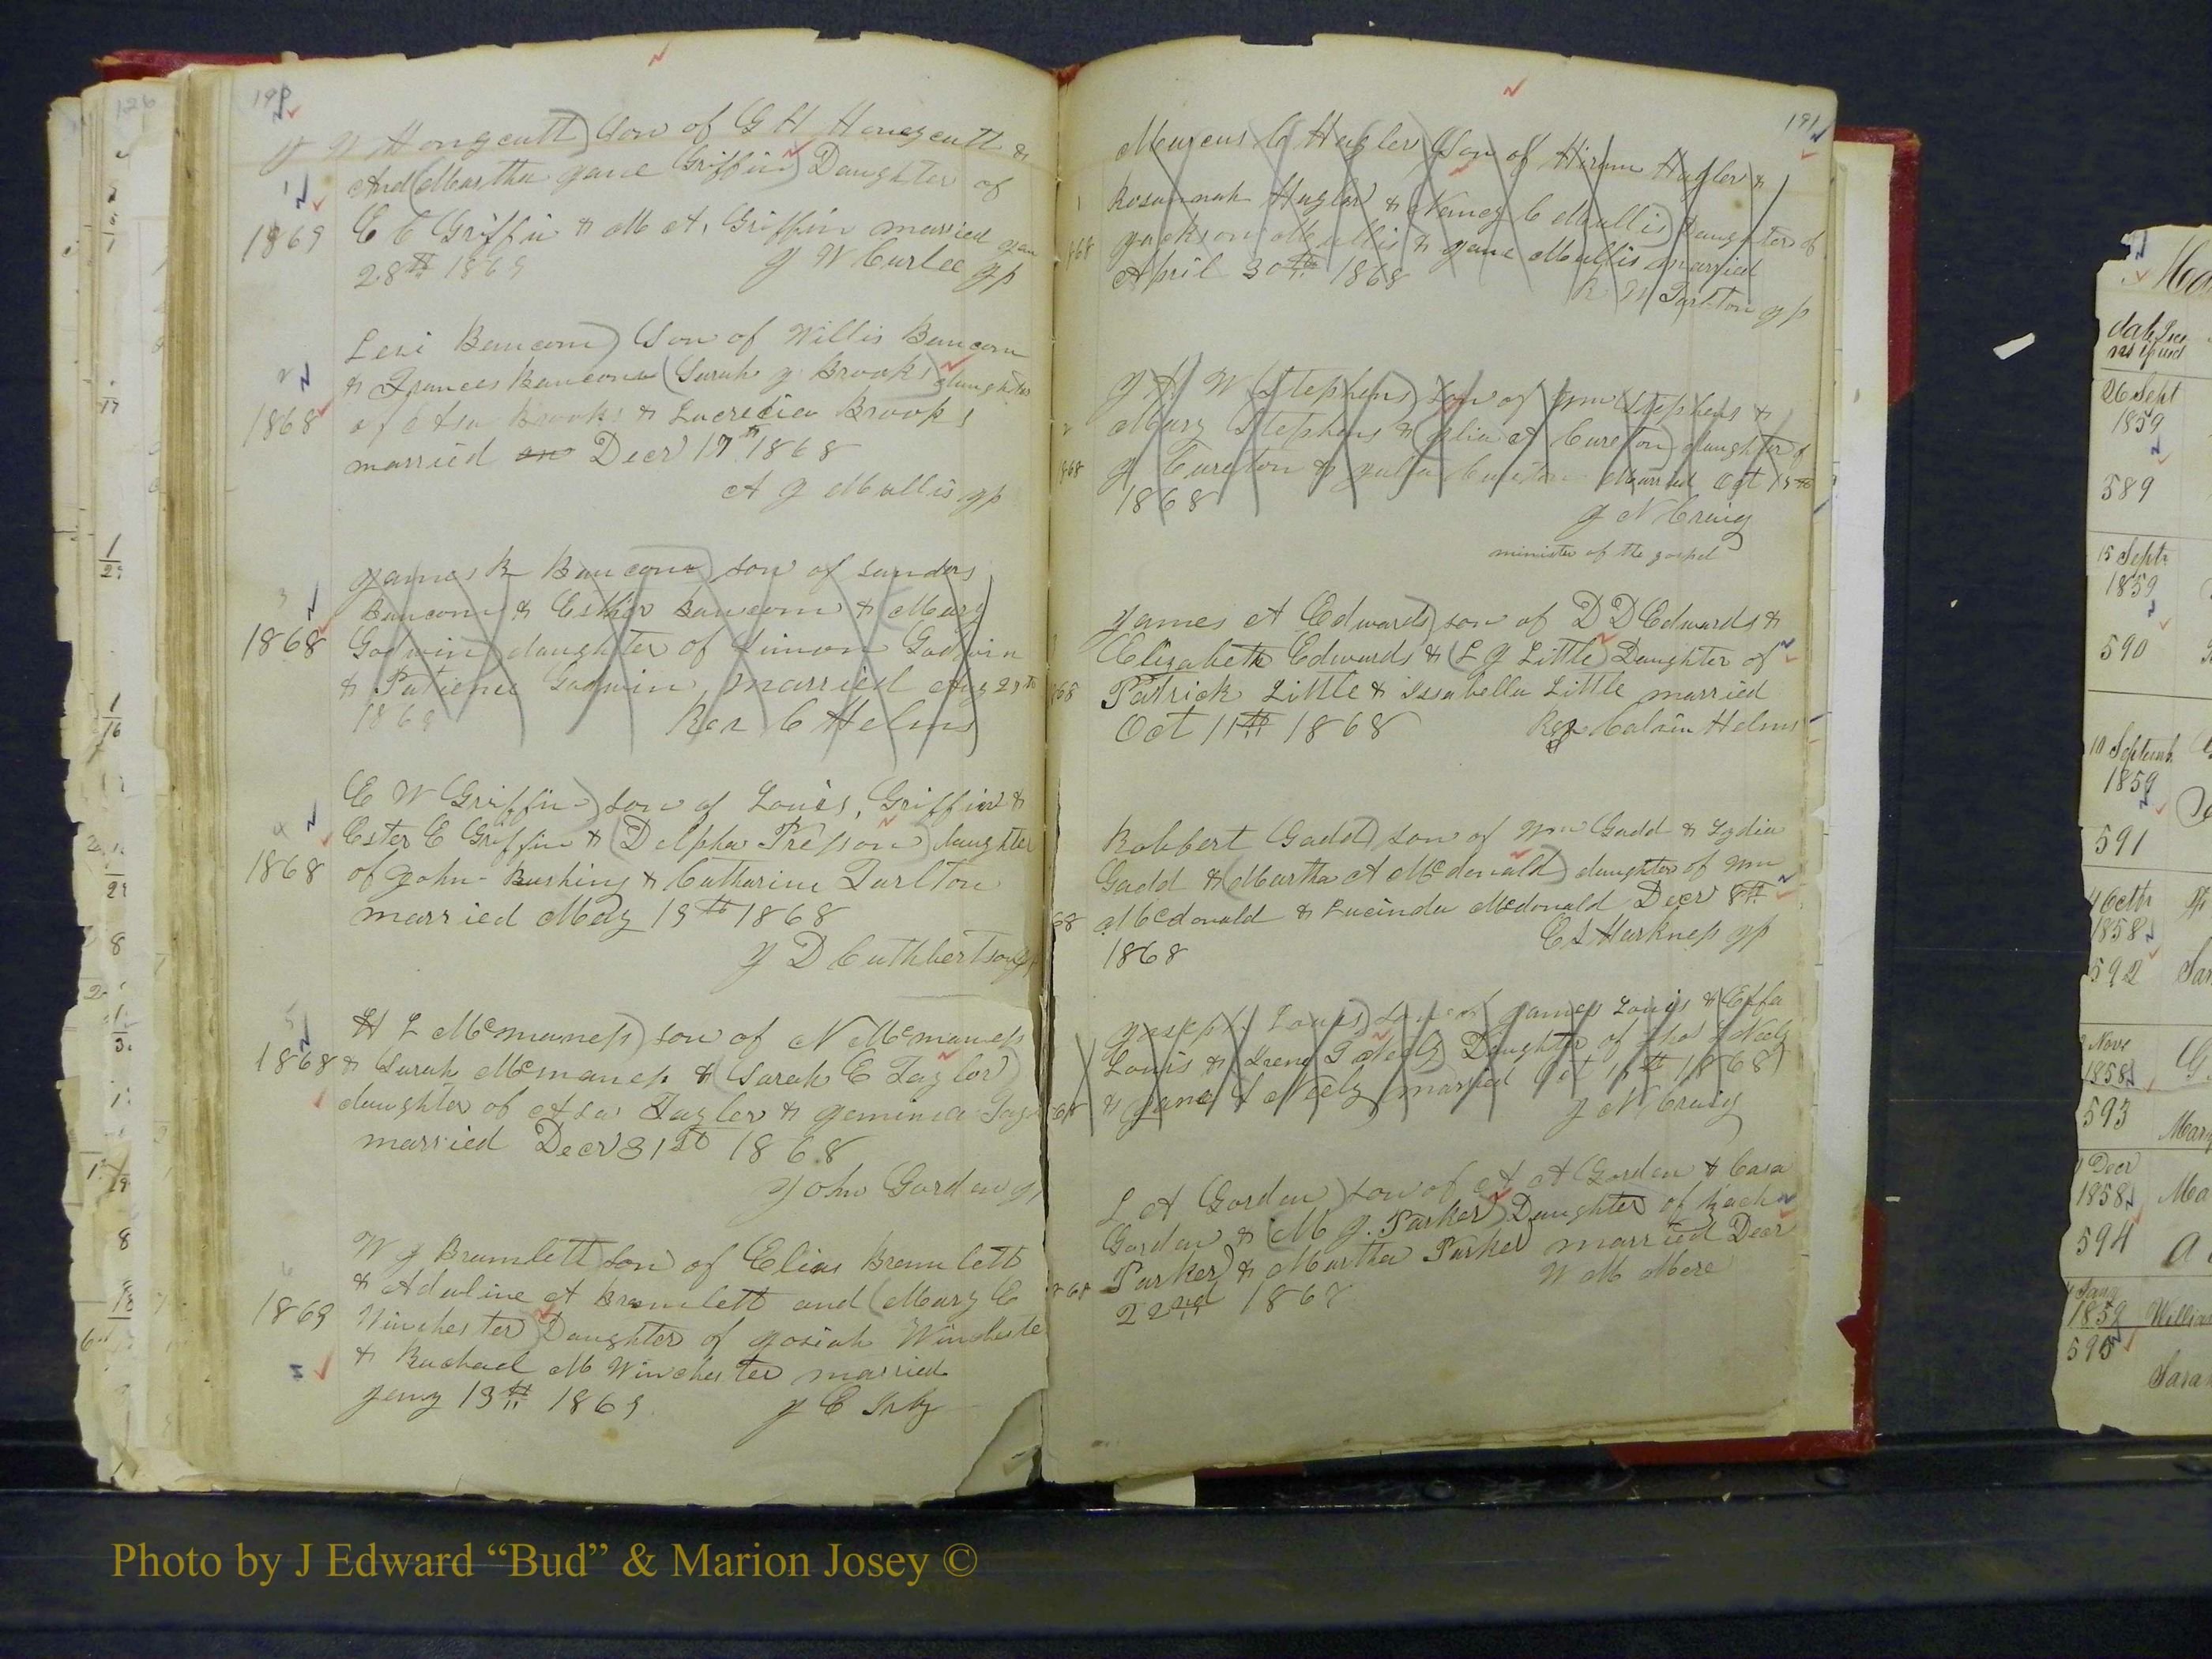 190
J W Hongcutt) Son of G H Honeycutt &
And (Martha Jane Griffin) Daughter of
1869 E C Griffin & M A, Griffin married Jan
28th 1869 J W Curlee JP
Levi Baucom) Son of Willis Baucom
& Frances Baucom (Sarah J Brooks) daughter
1868 of Asa Brooks & Lucrecia Brooks
married on Decr 17th 1868
A J Mullis JP
James R Baucom) son of Sanders
Baucom & Esther Baucom & Mary
1868 Godwin daughter of Simon Godwin
& Patience Godwin, married Aug 29th
1868 Rev C Helms
E W Griffin) Son of Louis, Griffin &
Ester E Griffin & (Delpha Presson) daughter
1868 of John Bushing & Catharine Tarlton
married May 19th 1868
J D Cuthbertson JP
H L McManess) son of N McManess
1868 & Sarah McManess & (Sarah E Taylor)
daughter of Asa Taylor & Jemima
married Decr 31st 1868
John Gordon
W J Bramlett) Son of Elias Bramlett
& Adaline A Bramlett and (Mary E
1869 Winchester) Daughter of Josiah Winchester
& Rachael M Winchester married
Jany 13th 1869 J E Irby
191
Marcus C Hagler Son of Hiram Hagler &
Rosannah Hagler & (Nancy C Mullis) Daughter of
Jackson Mullis & Jane Mullis married
April 30th 1868
R W Tarlton JP
J A W Stephens) Son of Wm Stephens &
Mary Stephens & (Julia A Cureton) daughter of
J Cureton & Julia Cureton Married Oct 15th
1868
J N Craig
minister of the gospel
James A Edwards) son of D D Edwards &
Elizabeth Edwards & (L J Little) Daughter of
Patrick Little & Issabella Little married
Oct 11th 1868 Rev Calvin Helms
Robbert Gadd) son of Wm Gadd & Lydia
Gadd & (Martha A McDonald) daughter of Wm
McDonald & Lucinda McDonald Decr 8th
1868 C L Harkness JP
Joseph Louis) Son of James Louis & Effa
Louis & (Irene T Neely) Daughter of Thos J Neely
& Jane Neely married Oct 1868
J N Craig
L A Gordon) Son of A A Gordon & Casa
Gordon & (M J. Parker) Daughter of Zach
Parker & Martha Parker married Decr
22nd 1868 W M Mere
26 Sept
1859
589
15 Septr
1859
590
10 Septemb
1859
591
4 Octr
1858
592
Nove
1858
593
Decr
1858
594
Jany
1859
595
Photo by J Edward “Bud” & Marion Josey ©